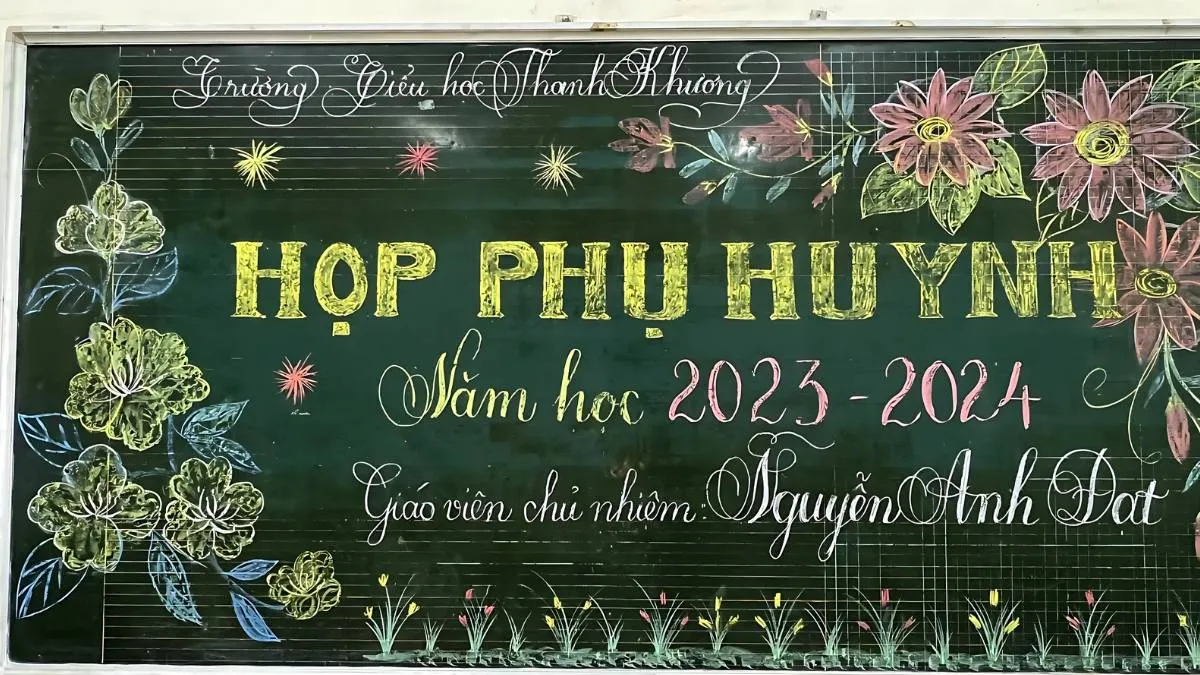 Trường Tiểu học Thanh Khương
HỌP PHỤ HUYNH
Năm học 2023 - 2024
Giáo viên chủ nhiệm: Nguyễn Anh Đạt